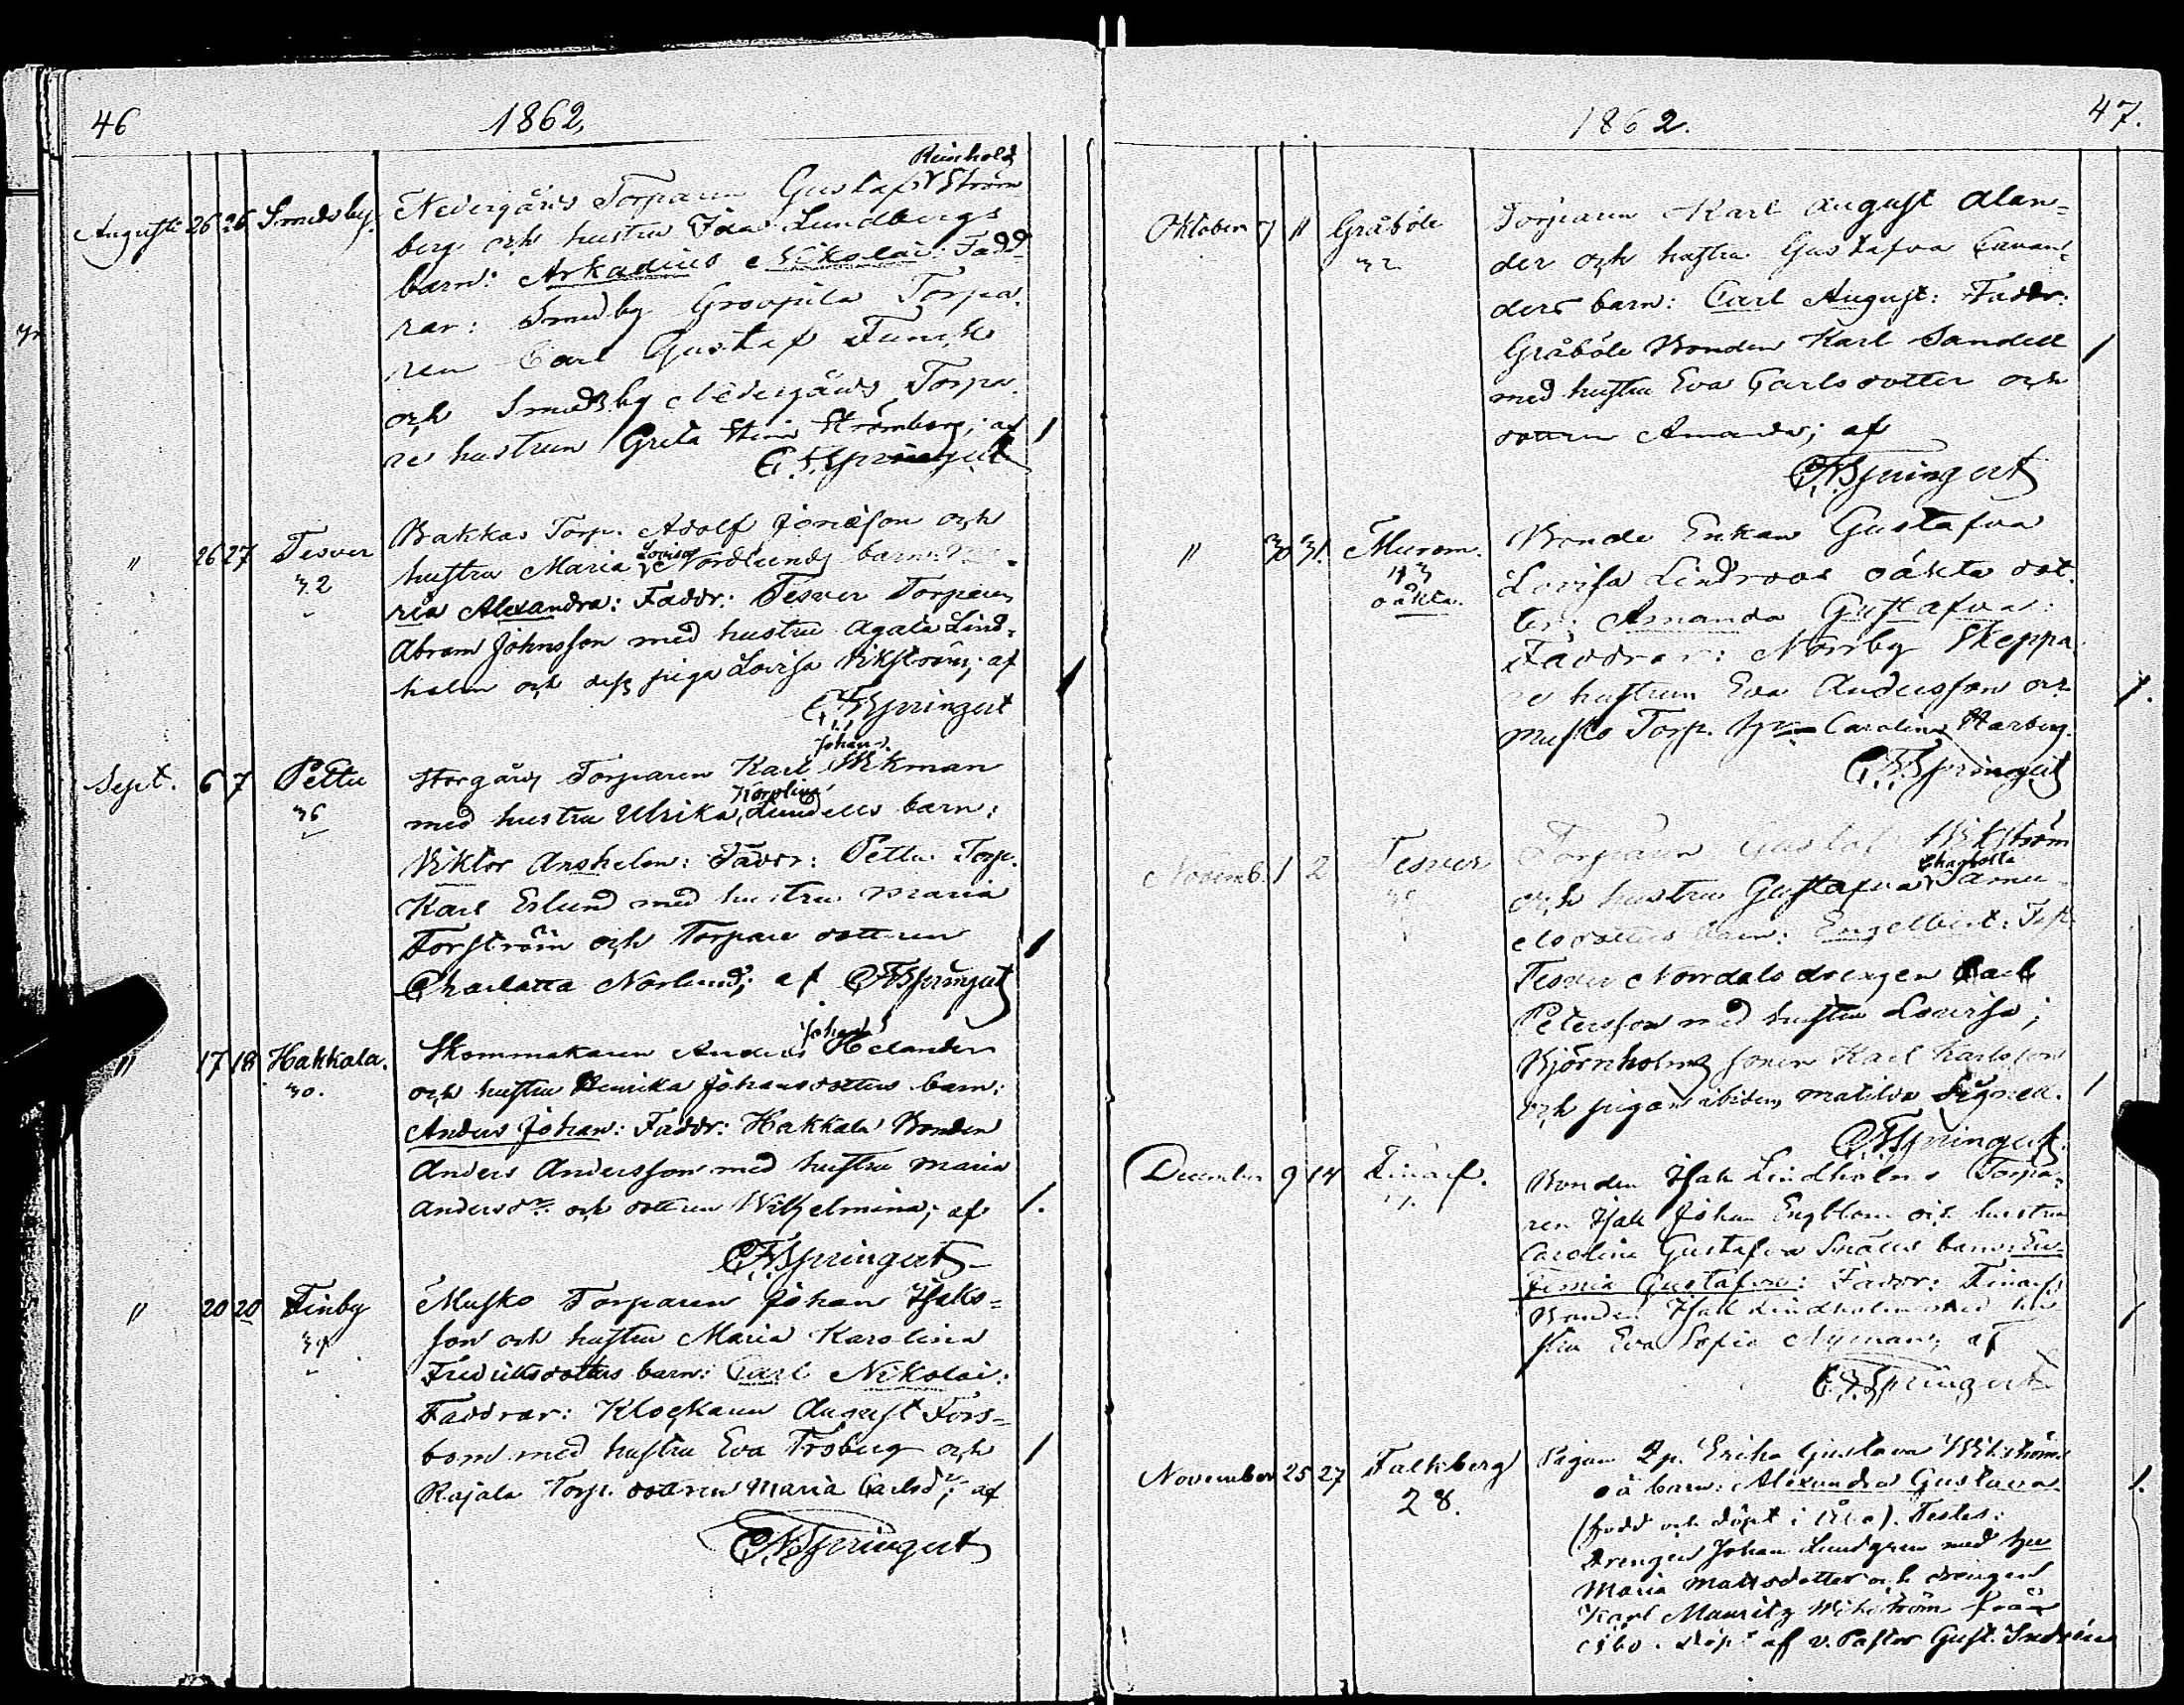 46
1862,
Augusti 26 26 Smedsby.
Reinhold
Nedergårds Torparen Gustaf Ström
berg och hustru Ida Lundbergs
barn: Arkadius Nikolai: Fadd
rar: Smedsby Torpa
ren Carl Gustaf
och Smedsby Nedergårds Torpa
re hustrun Greta Stina Strömberg; af
C. F. Springert
" 26 27 Tesver
32
Bakkas Torp. Adolf Jonasson och
Lovisa
hustru Maria Nordlunds barn: Ma
ria Alexandra: Faddr: Tesver Torparen
Abram Johnsson med hustru Agata Lind-
holm och dess piga Lovisa Vikström; af
C. F. Springert
Sept. 6 7 Pettu
36
Johans.
Storgårds Torparen Karl Ekman
Karolina
med hustru Ulrika Lundells barn:
Viktor Anshelm: Faddr: Pettu Torp.
Karl Eslund med hustru Maria
Forström och Torpare dottren
Charlotta Norlund; af C. F. Springert
" 17 18 Hakkala.
30.
Johan
Skommakaren Anders Helander
och hustru Henrika Johansdotters barn:
Anders Johan: Faddr: Hakkala Bonden
Anders Andersson med hustru Maria
Andersdr. och dottren Wilhelmina; af
C. F. Springert
" 20 20 Finby
Musko Torparen Johan Isaks-
son och hustru Maria Karolina
Fredriksdotters barn: Carl Nikolai:
Faddrar: Klockaren August Fors-
bom med hustru Eva Froberg och
Rajala Torp. dottren Maria Carlsdr; af
C. F. Springert
1862.
47.
Oktober 7 11 Gråböle
32
Torparen Karl August Alan-
der och hustru Gustafva Cavan-
ders barn: Carl August: Faddr:
Gråböle Bonden Karl Sandell
med hustru Eva Carlsdotter och
dottren Amanda; af
C. F. Springert
" 30 31. Murom.
43
oäkta.
Bonde Enkan Gustafva
Lovisa Lindroos oäkta dot.
ter: Amanda Gustafva:
Faddrar: Norrby Skeppa
re hustrun Eva Andersson och
Musko Torp. Carolina Harberg.
C. F. Springert
Novemb. 1 2 Tesver
Torparen Gustaf Wikström
Charlotta
och hustru Gustafva Samu
elsdotters barn: Engelbert: Fadd.
Tesver Norrdals drengen Carl
Petersson med hustru Lovisa;
Björnholms sonen Karl Karlsson
och pigan ibidem Matilda Signea.
C. F. Springert.
December 9 14 Finarf.
Bonden Isak Lindholms Torpa-
ren Isak Johan Engblom och hustru
Carolina Gustafva barn: Eu-
femia Gustafva: Faddr: Finarf
Bonden Isak Lindholm med hu
stru Eva Sofia Nyman; af
C. F. Springert
November 25 27 Falkberg
28.
Pigan Erika Gustava Wikströms
oä barn: Alexandra Gustava
(född och döpt i Åbo). Testes:
Drengen Johan Lundgren med hu
Maria Mattsdotter och drengen
Karl Mauritz Wikström från
Åbo. döpt af v. Pastor Gust.